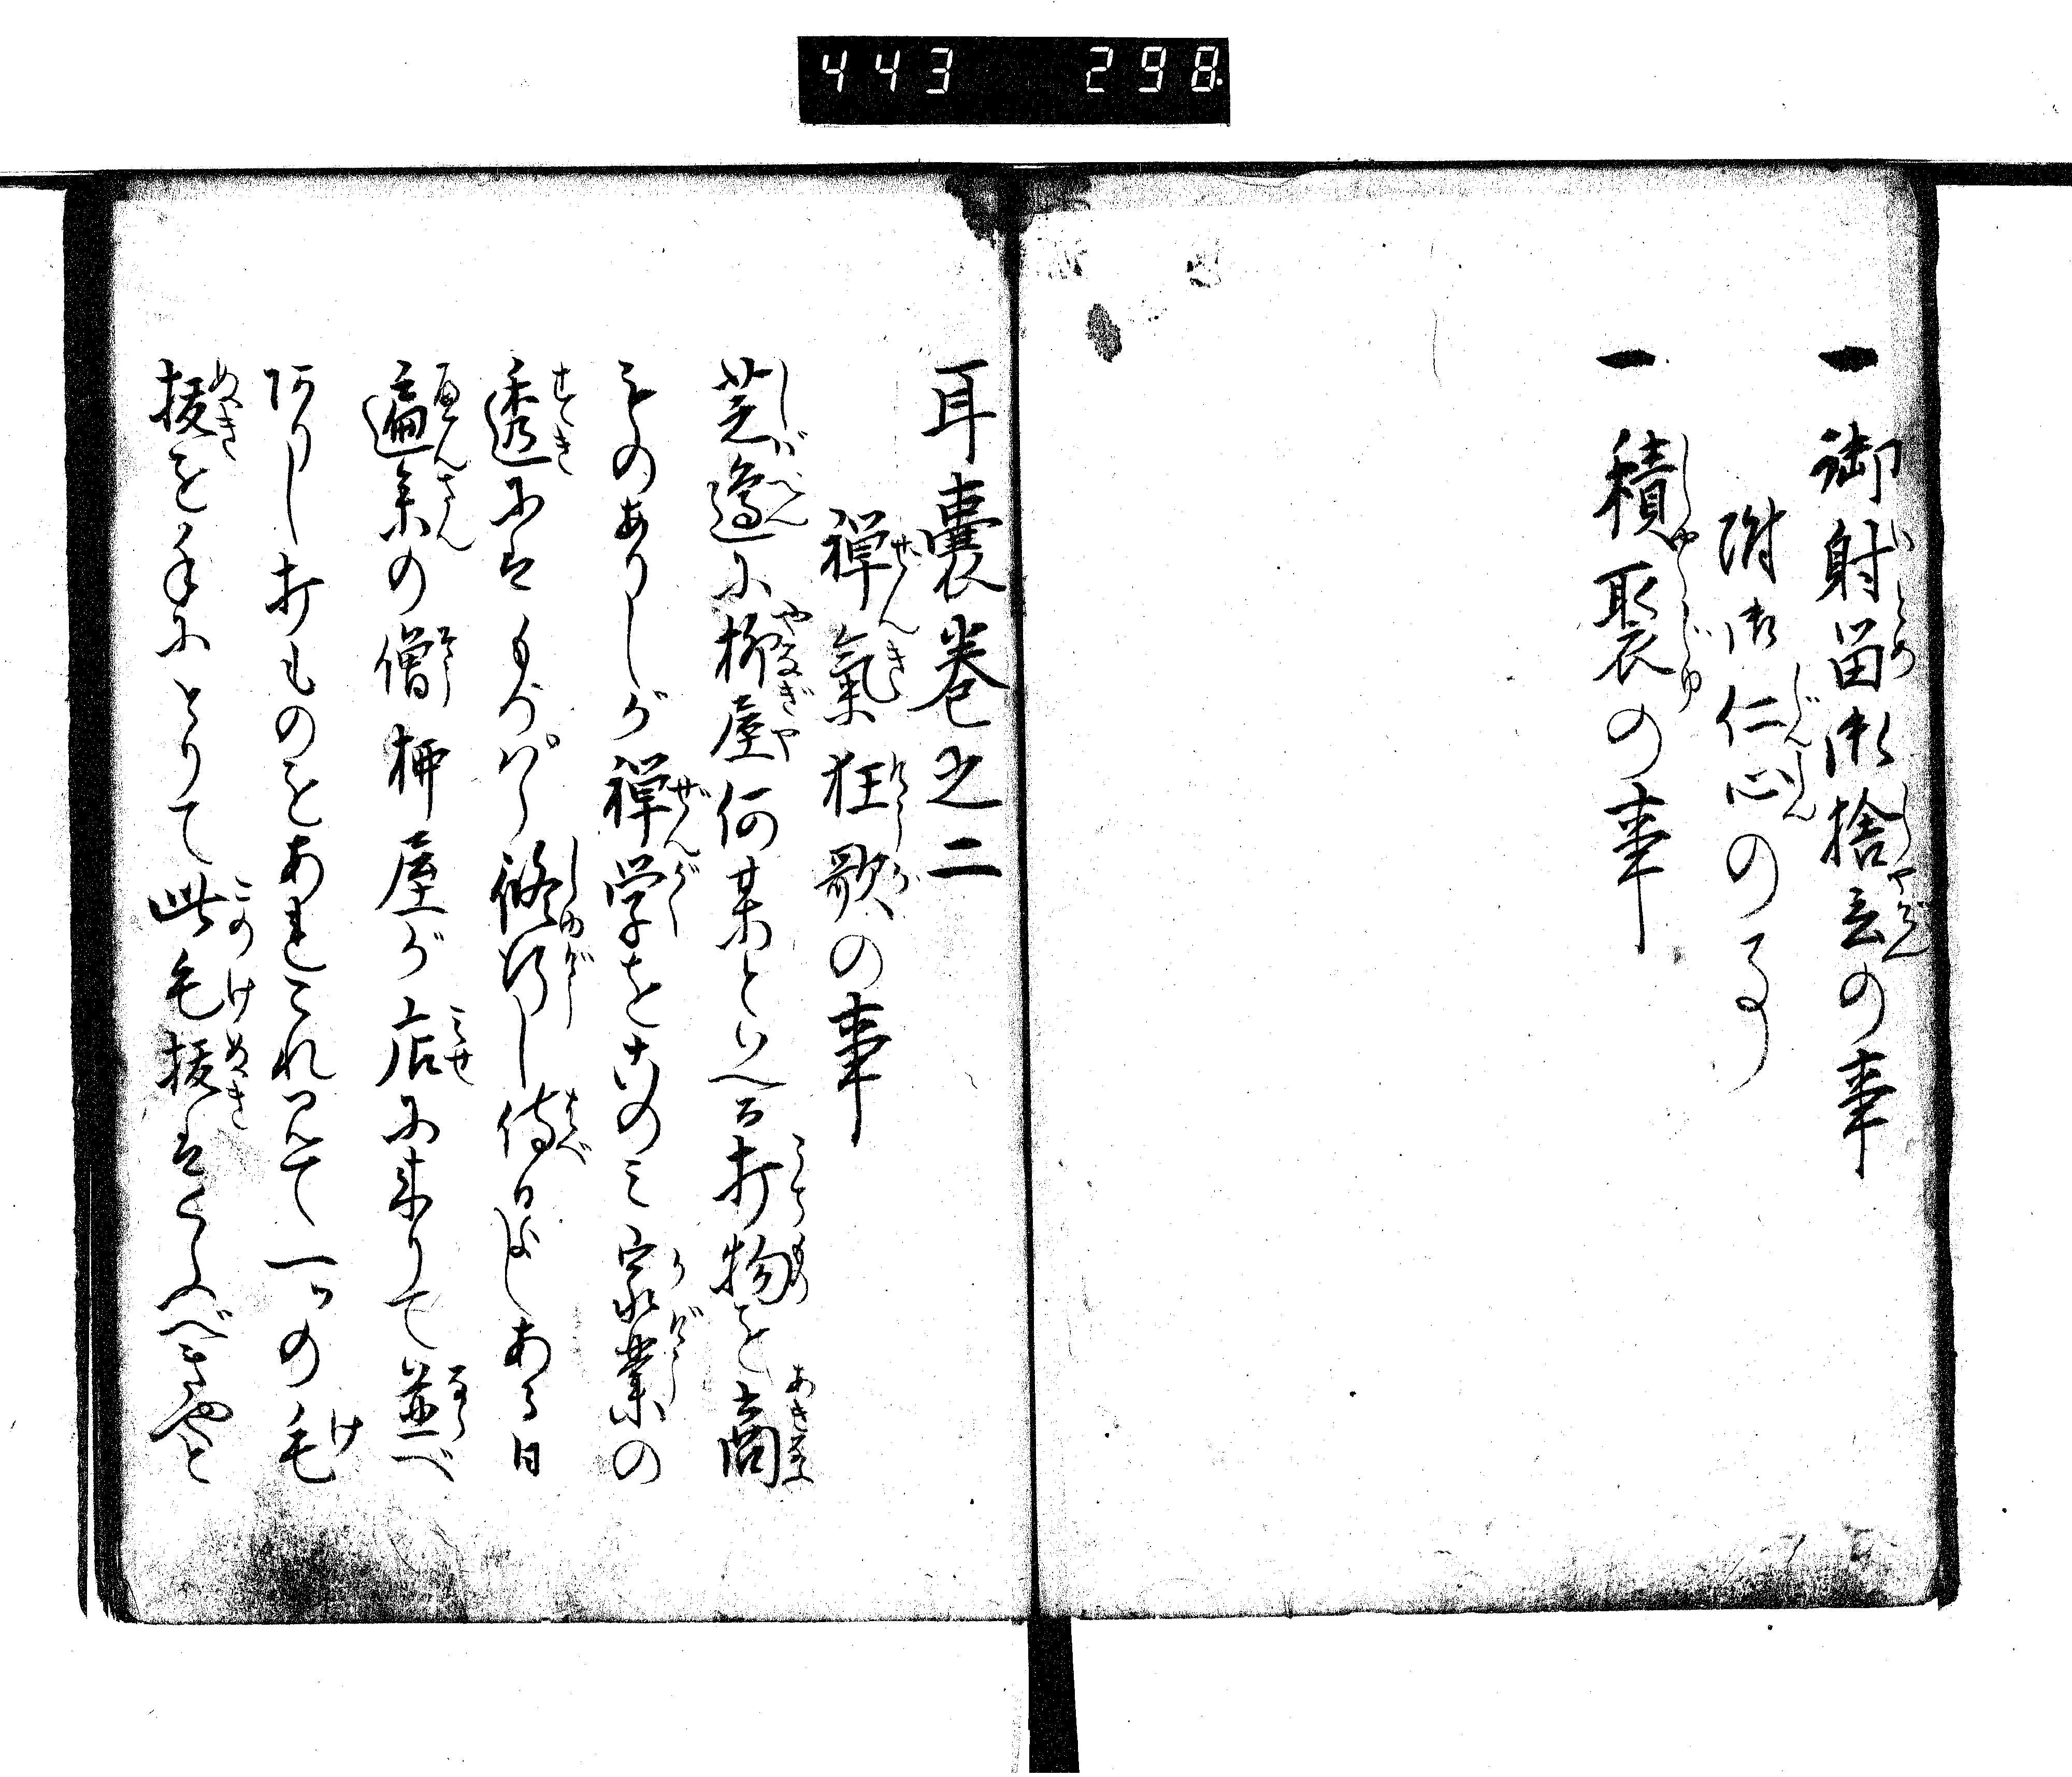 443 298
一御射留御捨云の事
附御仁心の事
一積聚の事
耳囊巻之二
禅氣狂歌の事
芝邊に柳屋何某といへる打物を商
ものありしが禅学をこのミ家業の
透にはもつぱら修行し侍日しある日
遍参の僧柳屋が店に来りて並べ
ありし打ものをあれこれ見て一ツの毛
抜を手にとりて此毛抜はくふべきやと